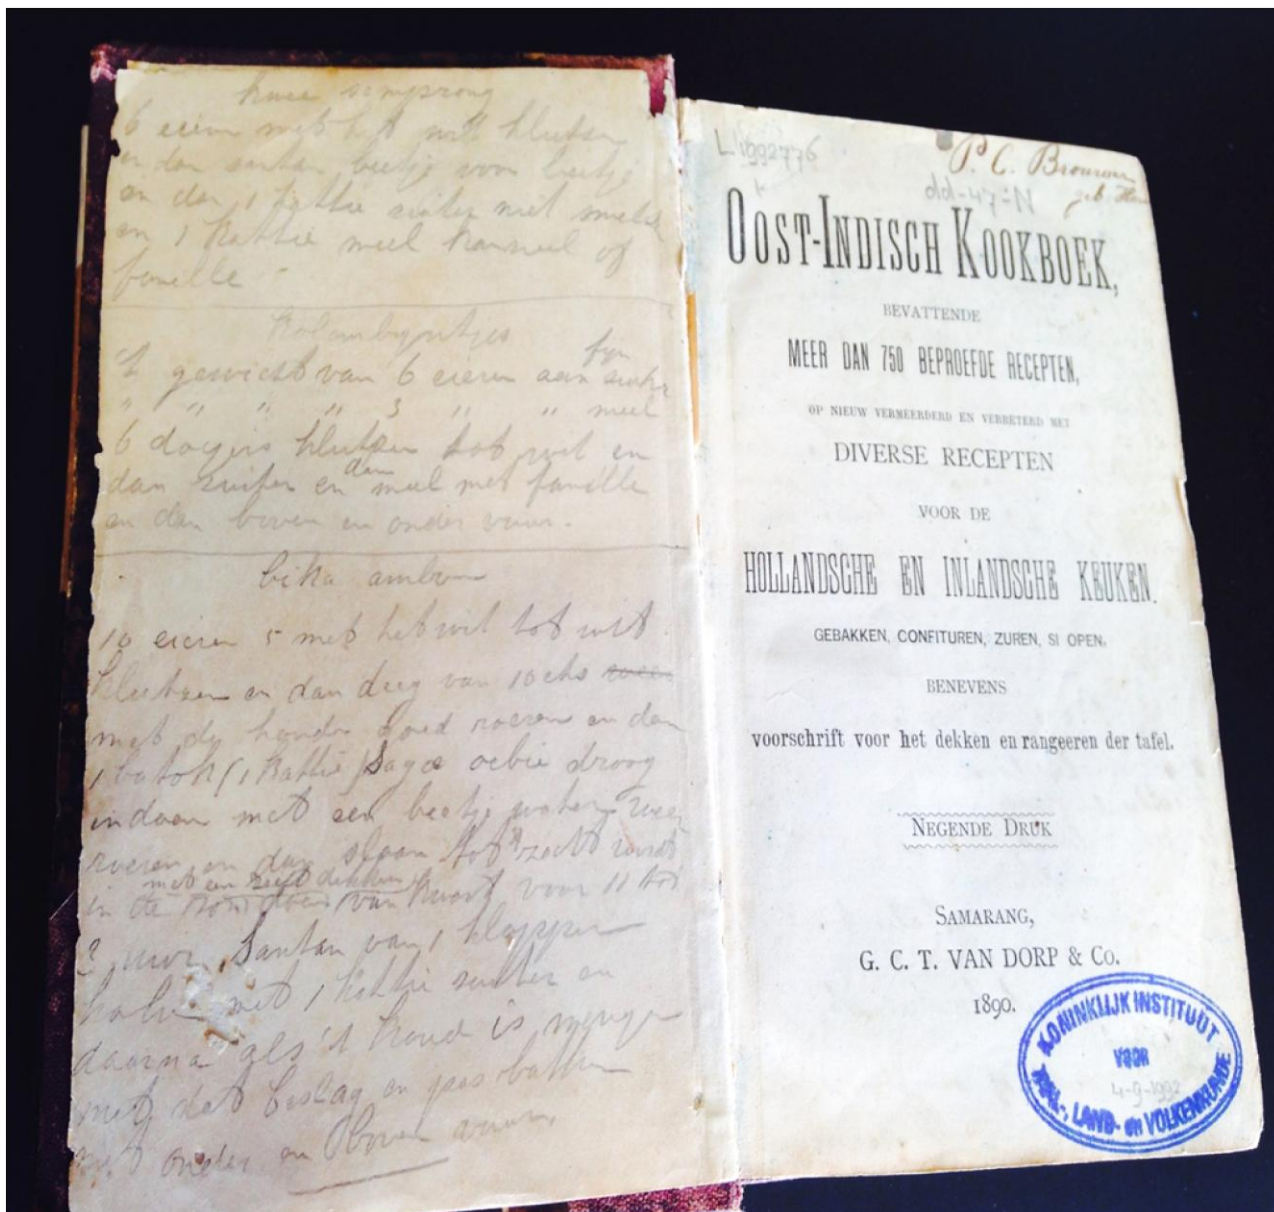 kwee semprong
6 eieren met het wit klutsen
en dan santan beetje voor beetje
en dan 1 kattie suiker niet smelt
en 1 kattie meel kaneel of
fanille
Kolombijntjes
't gewicht van 6 eieren aan fijn suiker
" " " " 3 " " meel
6 dogirs klutsen tot wit en
dan suiker en dan meel met fanille
en dan boven en onder vuur.
bika ambon
10 eieren 5 met het wit tot wit
klutsen en dan deeg van 10 cts
met de handen goed roeren en dan
1 batok (1 kattie) sagoe oebie droog
indoen met een beetje water weer
roeren en dan staan tot 't zacht wordt
met een zeef dekken
in de van kwart voor 11 tot
2 uur. Santan van 1 klapper
koken met 1 kattie suiker en
daarna als 't koud is mengen
met dat beslag en pas bakken
met onder en boven vuur.
L 1992776
P. C. Brouwer
dd-47-N
geb.
OOST-INDISCH KOOKBOEK,
BEVATTENDE
MEER DAN 750 BEPROEFDE RECEPTEN,
OP NIEUW VERMEERDERD EN VERBETERD MET
DIVERSE RECEPTEN
VOOR DE
HOLLANDSCHE EN INLANDSCHE KEUKEN.
GEBAKKEN, CONFITUREN, ZUREN, SI OPEN.
BENEVENS
voorschrift voor het dekken en rangeeren der tafel.
NEGENDE DRUK
SAMARANG,
G. C. T. VAN DORP & Co.
1890.
KONINKLIJK INSTITUUT
VOOR
4-9-1992
TAAL-, LAND- en VOLKENKUNDE